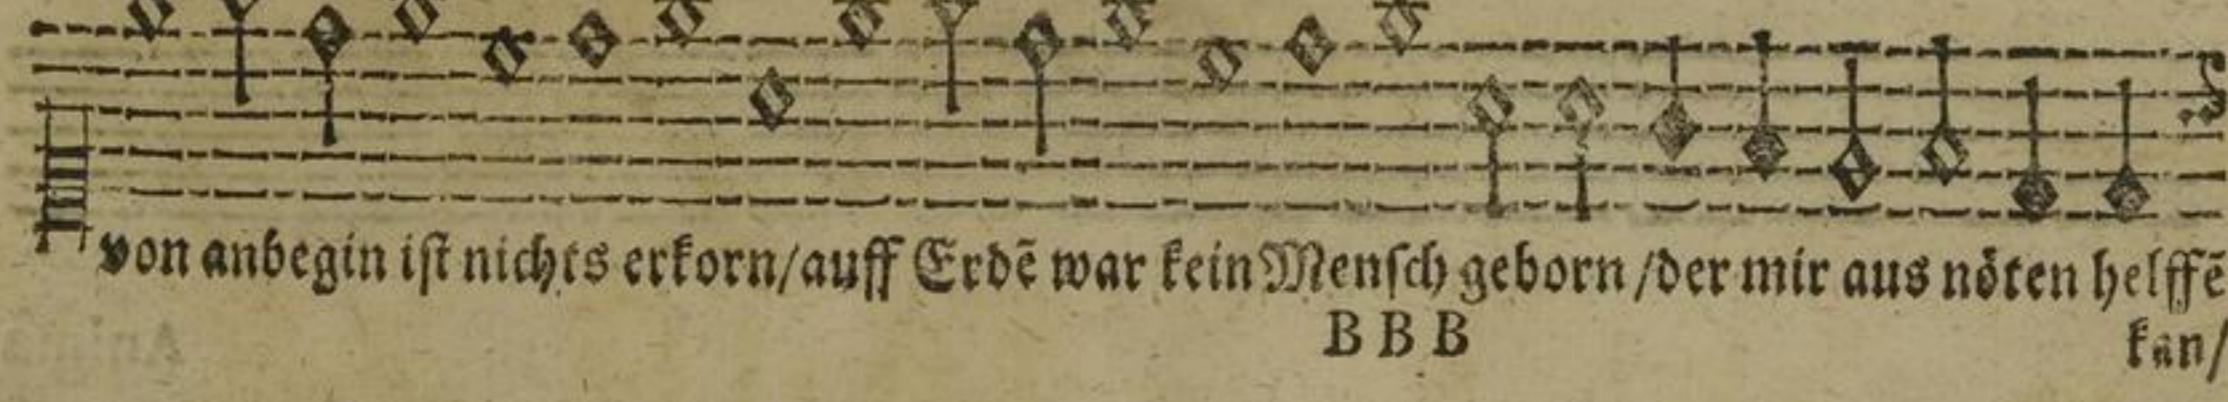 von anbegin iſt nichts erkorn/auff Erdẽ war kein Menſch geborn/der mir aus nöten helffẽ
B B B
kan/